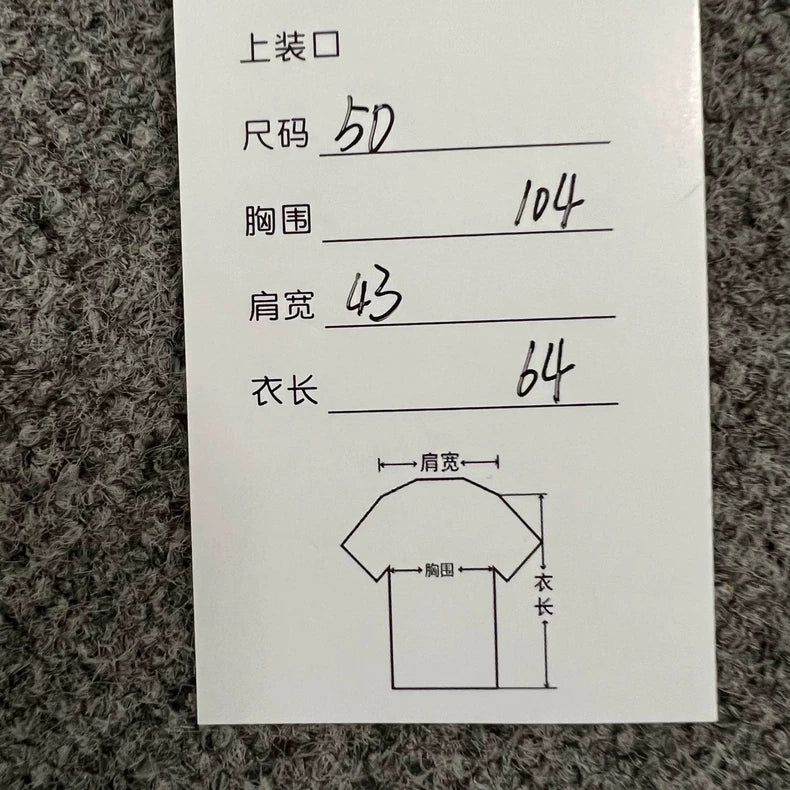 上装口
尺码 50
胸围 104
肩宽 43
衣长 64
肩宽
胸围
衣长